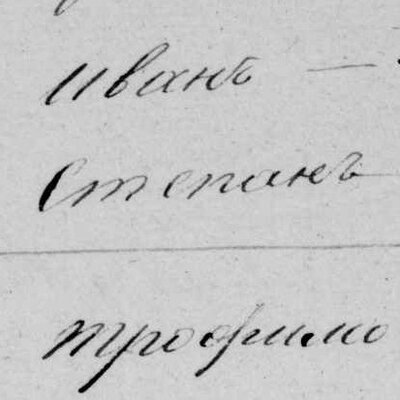 иванъ —
Степанъ
трофимо